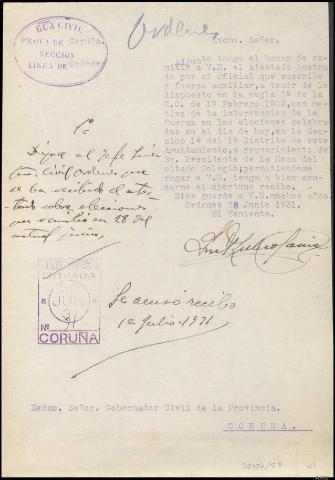 GUARDIA CIVIL
PROVª DE Coruña.
SECCIÓN
LINEA DE Ordenes
Ordenes
Excmo. Señor.
Adjunto tengo el honor de re-
mitir a V.E. el atestado instru
ido por el Oficial que suscribe
y fuerza auxiliar, a tenor de lo
dispuesto en la regla 5ª de la
R.O. de 19 Febrero 1903, con mo-
tivo de la intervencion de la
fuerza en las elecciones celebra-
das en el dia de hoy, en la Sec-
ción 1ª del 1º Distrito de este
Ayuntamiento, a requerimiento del
Sr. Presidente de la Mesa del
citado Colegio; permitiendome
rogar a V.E. tenga a bien acu-
sarme el oportuno recibo.
Dios guarde a V.E. muchos años.
Ordenes 28 Junio 1931.
El Teniente.
Cª
Dígase al Jefe Linea
Civil Ordenes que
se ha recibido el ates-
tado sobre elecciones
que remitió en 28 del
actual junio,
ENTRADA
JUN
31
Nº
CORUÑA
Se acusó recibo
1º Julio-1931
Excmo. Señor. Gobernador Civil de la Provincia.
CORUÑA.